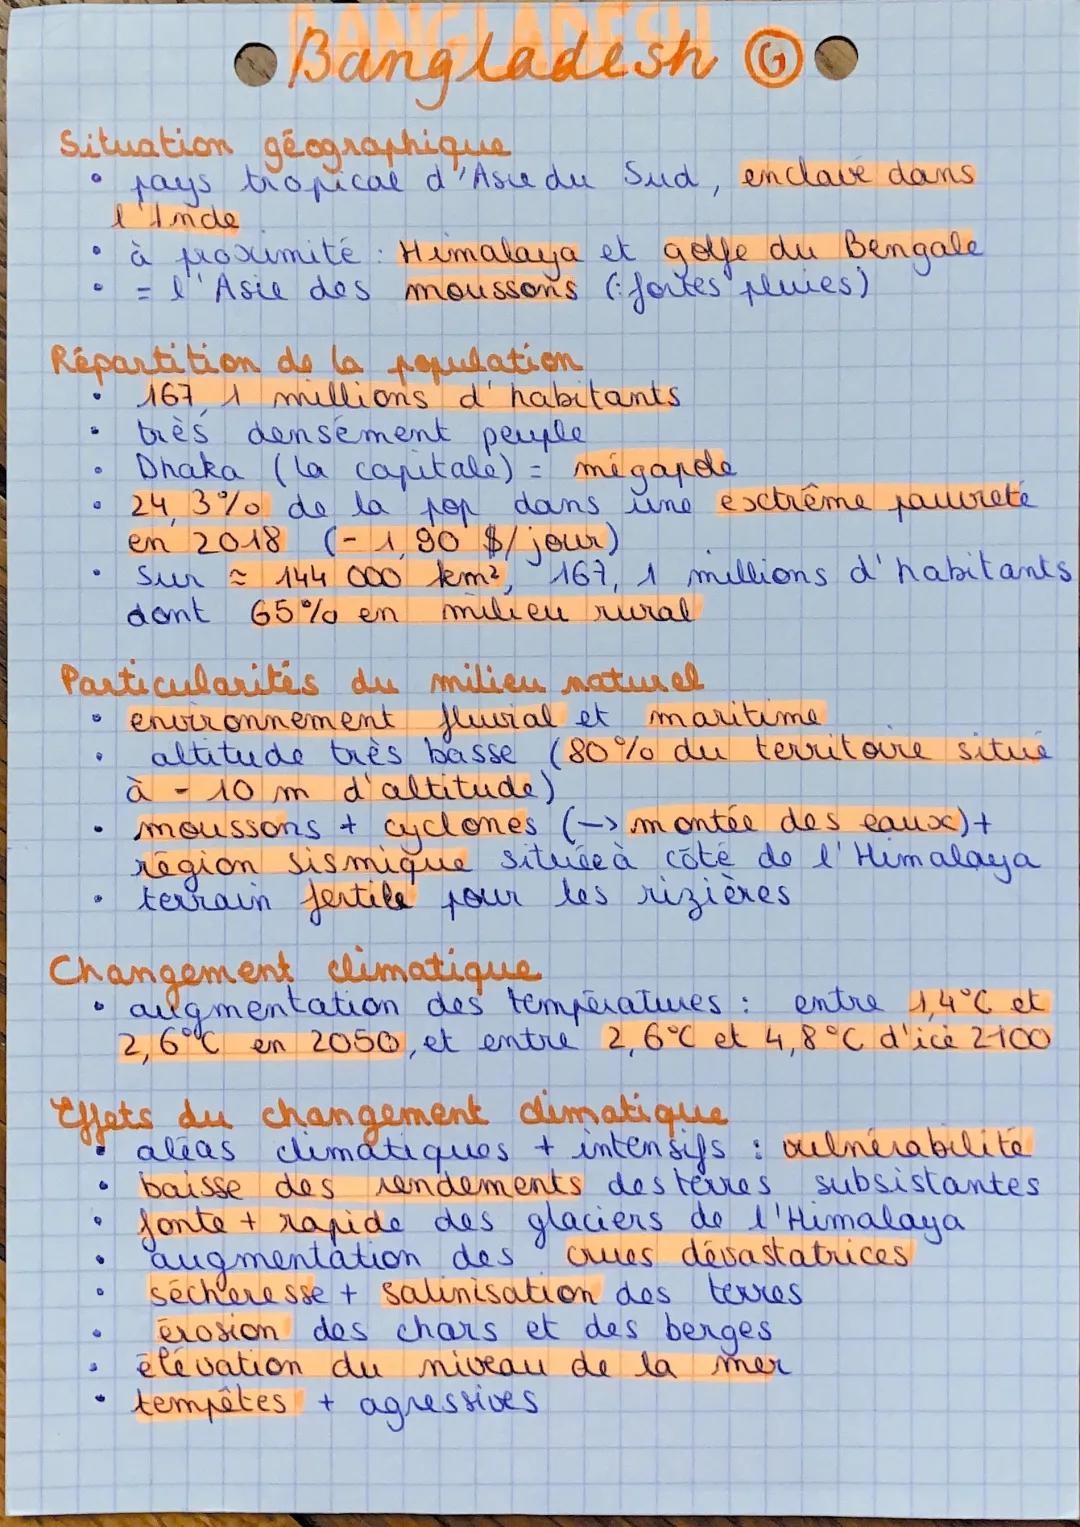 BANGLADESH
Bangladesh G
Situation géographique
• pays tropical d'Asie du Sud, enclavé dans
l'Inde
• à proximité : Himalaya et golfe du Bengale
• = l'Asie des moussons (: fortes pluies)
Répartition de la population
• 167,1 millions d'habitants
• très densément peuple
• Dhaka (la capitale) = mégapole
• 24,3% de la pop dans une extrême pauvreté
en 2018 (- 1,90 $/jour)
• Sur ≈ 144 000 km², 167,1 millions d'habitants
dont 65% en milieu rural
Particularités du milieu naturel
• environnement fluvial et maritime
• altitude très basse (80% du territoire situé
à - 10 m d'altitude)
• moussons + cyclones (→ montée des eaux) +
région sismique située à côté de l'Himalaya
• terrain fertile pour les rizières
Changement climatique
• augmentation des températures : entre 1,4°C et
2,6°C en 2050, et entre 2,6°C et 4,8°C d'ici 2100
Effets du changement climatique
• aléas climatiques + intensifs : vulnérabilité
• baisse des rendements des terres subsistantes
• fonte + rapide des glaciers de l'Himalaya
• augmentation des crues dévastatrices
• sécheresse + salinisation des terres
• érosion des chars et des berges
• élévation du niveau de la mer
• tempêtes + agressives